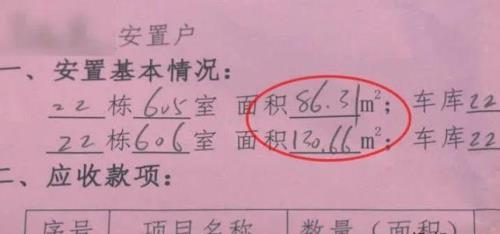 安置户
一、安置基本情况：
22栋605室 面积86.31m²；车库22
22栋606室 面积130.66m²；车库22
二、应收款项：
序号 项目名称 数量（面积）